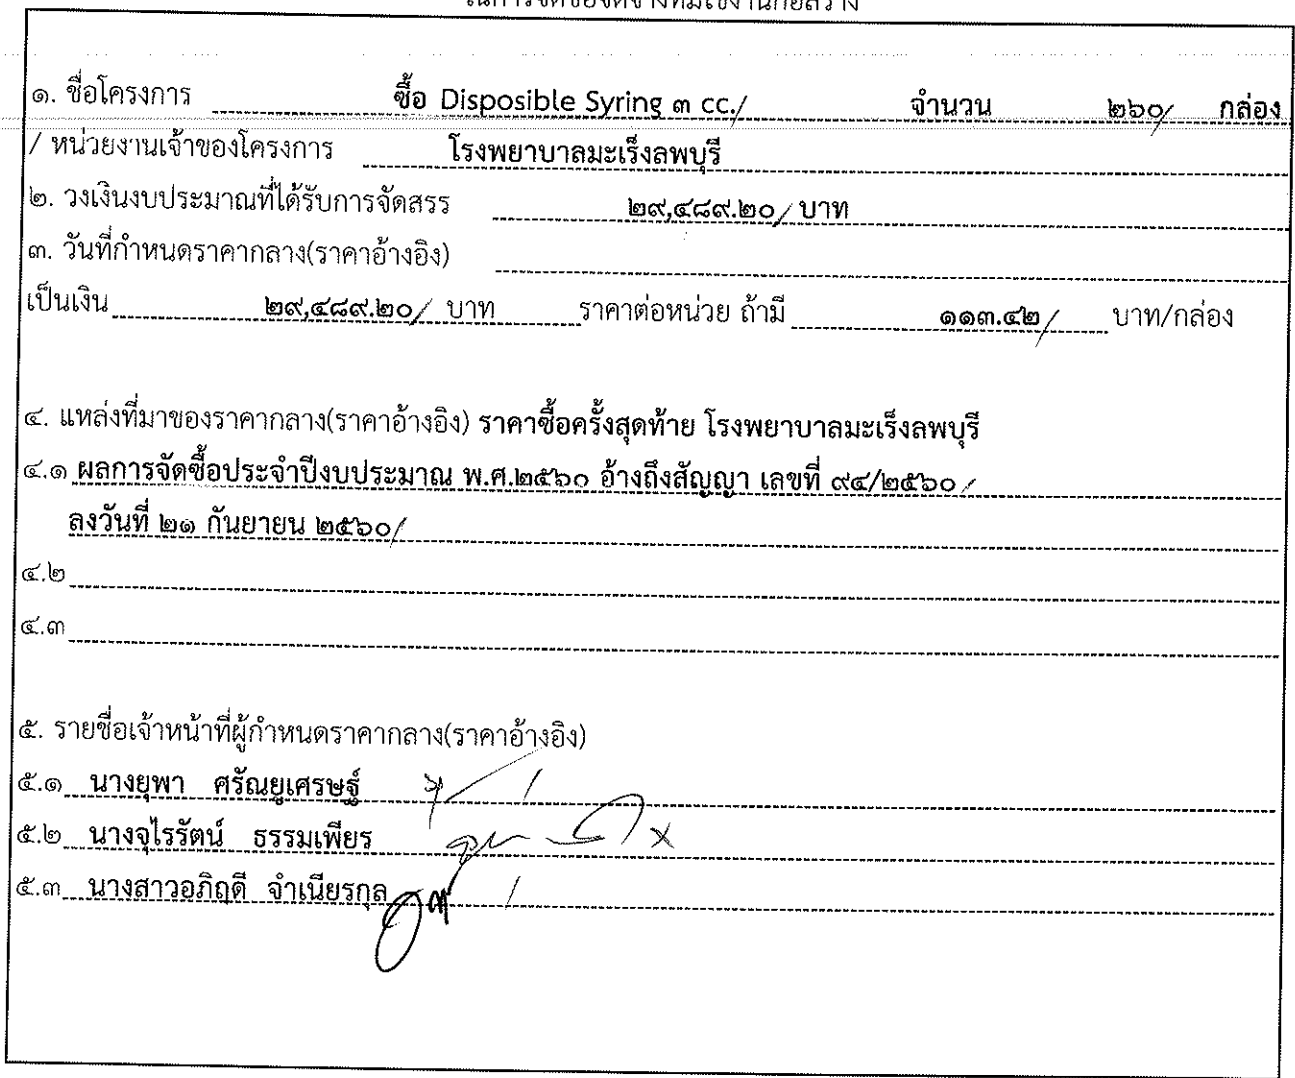 ในการจัดซื้อจัดจ้างที่มิใช่งานก่อสร้าง
๑. ชื่อโครงการ ซื้อ Disposible Syring ๓ cc./ จำนวน ๒๖๐/ กล่อง
/ หน่วยงานเจ้าของโครงการ โรงพยาบาลมะเร็งลพบุรี
๒. วงเงินงบประมาณที่ได้รับการจัดสรร ๒๙,๔๘๙.๒๐/ บาท
๓. วันที่กำหนดราคากลาง(ราคาอ้างอิง)
เป็นเงิน ๒๙,๔๘๙.๒๐/ บาท ราคาต่อหน่วย ถ้ามี ๑๑๓.๔๒/ บาท/กล่อง
๔. แหล่งที่มาของราคากลาง(ราคาอ้างอิง) ราคาซื้อครั้งสุดท้าย โรงพยาบาลมะเร็งลพบุรี
๔.๑ ผลการจัดซื้อประจำปีงบประมาณ พ.ศ.๒๕๖๐ อ้างถึงสัญญา เลขที่ ๙๔/๒๕๖๐/
ลงวันที่ ๒๑ กันยายน ๒๕๖๐/
๔.๒
๔.๓
๕. รายชื่อเจ้าหน้าที่ผู้กำหนดราคากลาง(ราคาอ้างอิง)
๕.๑ นางยุพา ศรัณยูเศรษฐ์
๕.๒ นางจุไรรัตน์ ธรรมเพียร
๕.๓ นางสาวอภิฤดี จำเนียรกุล